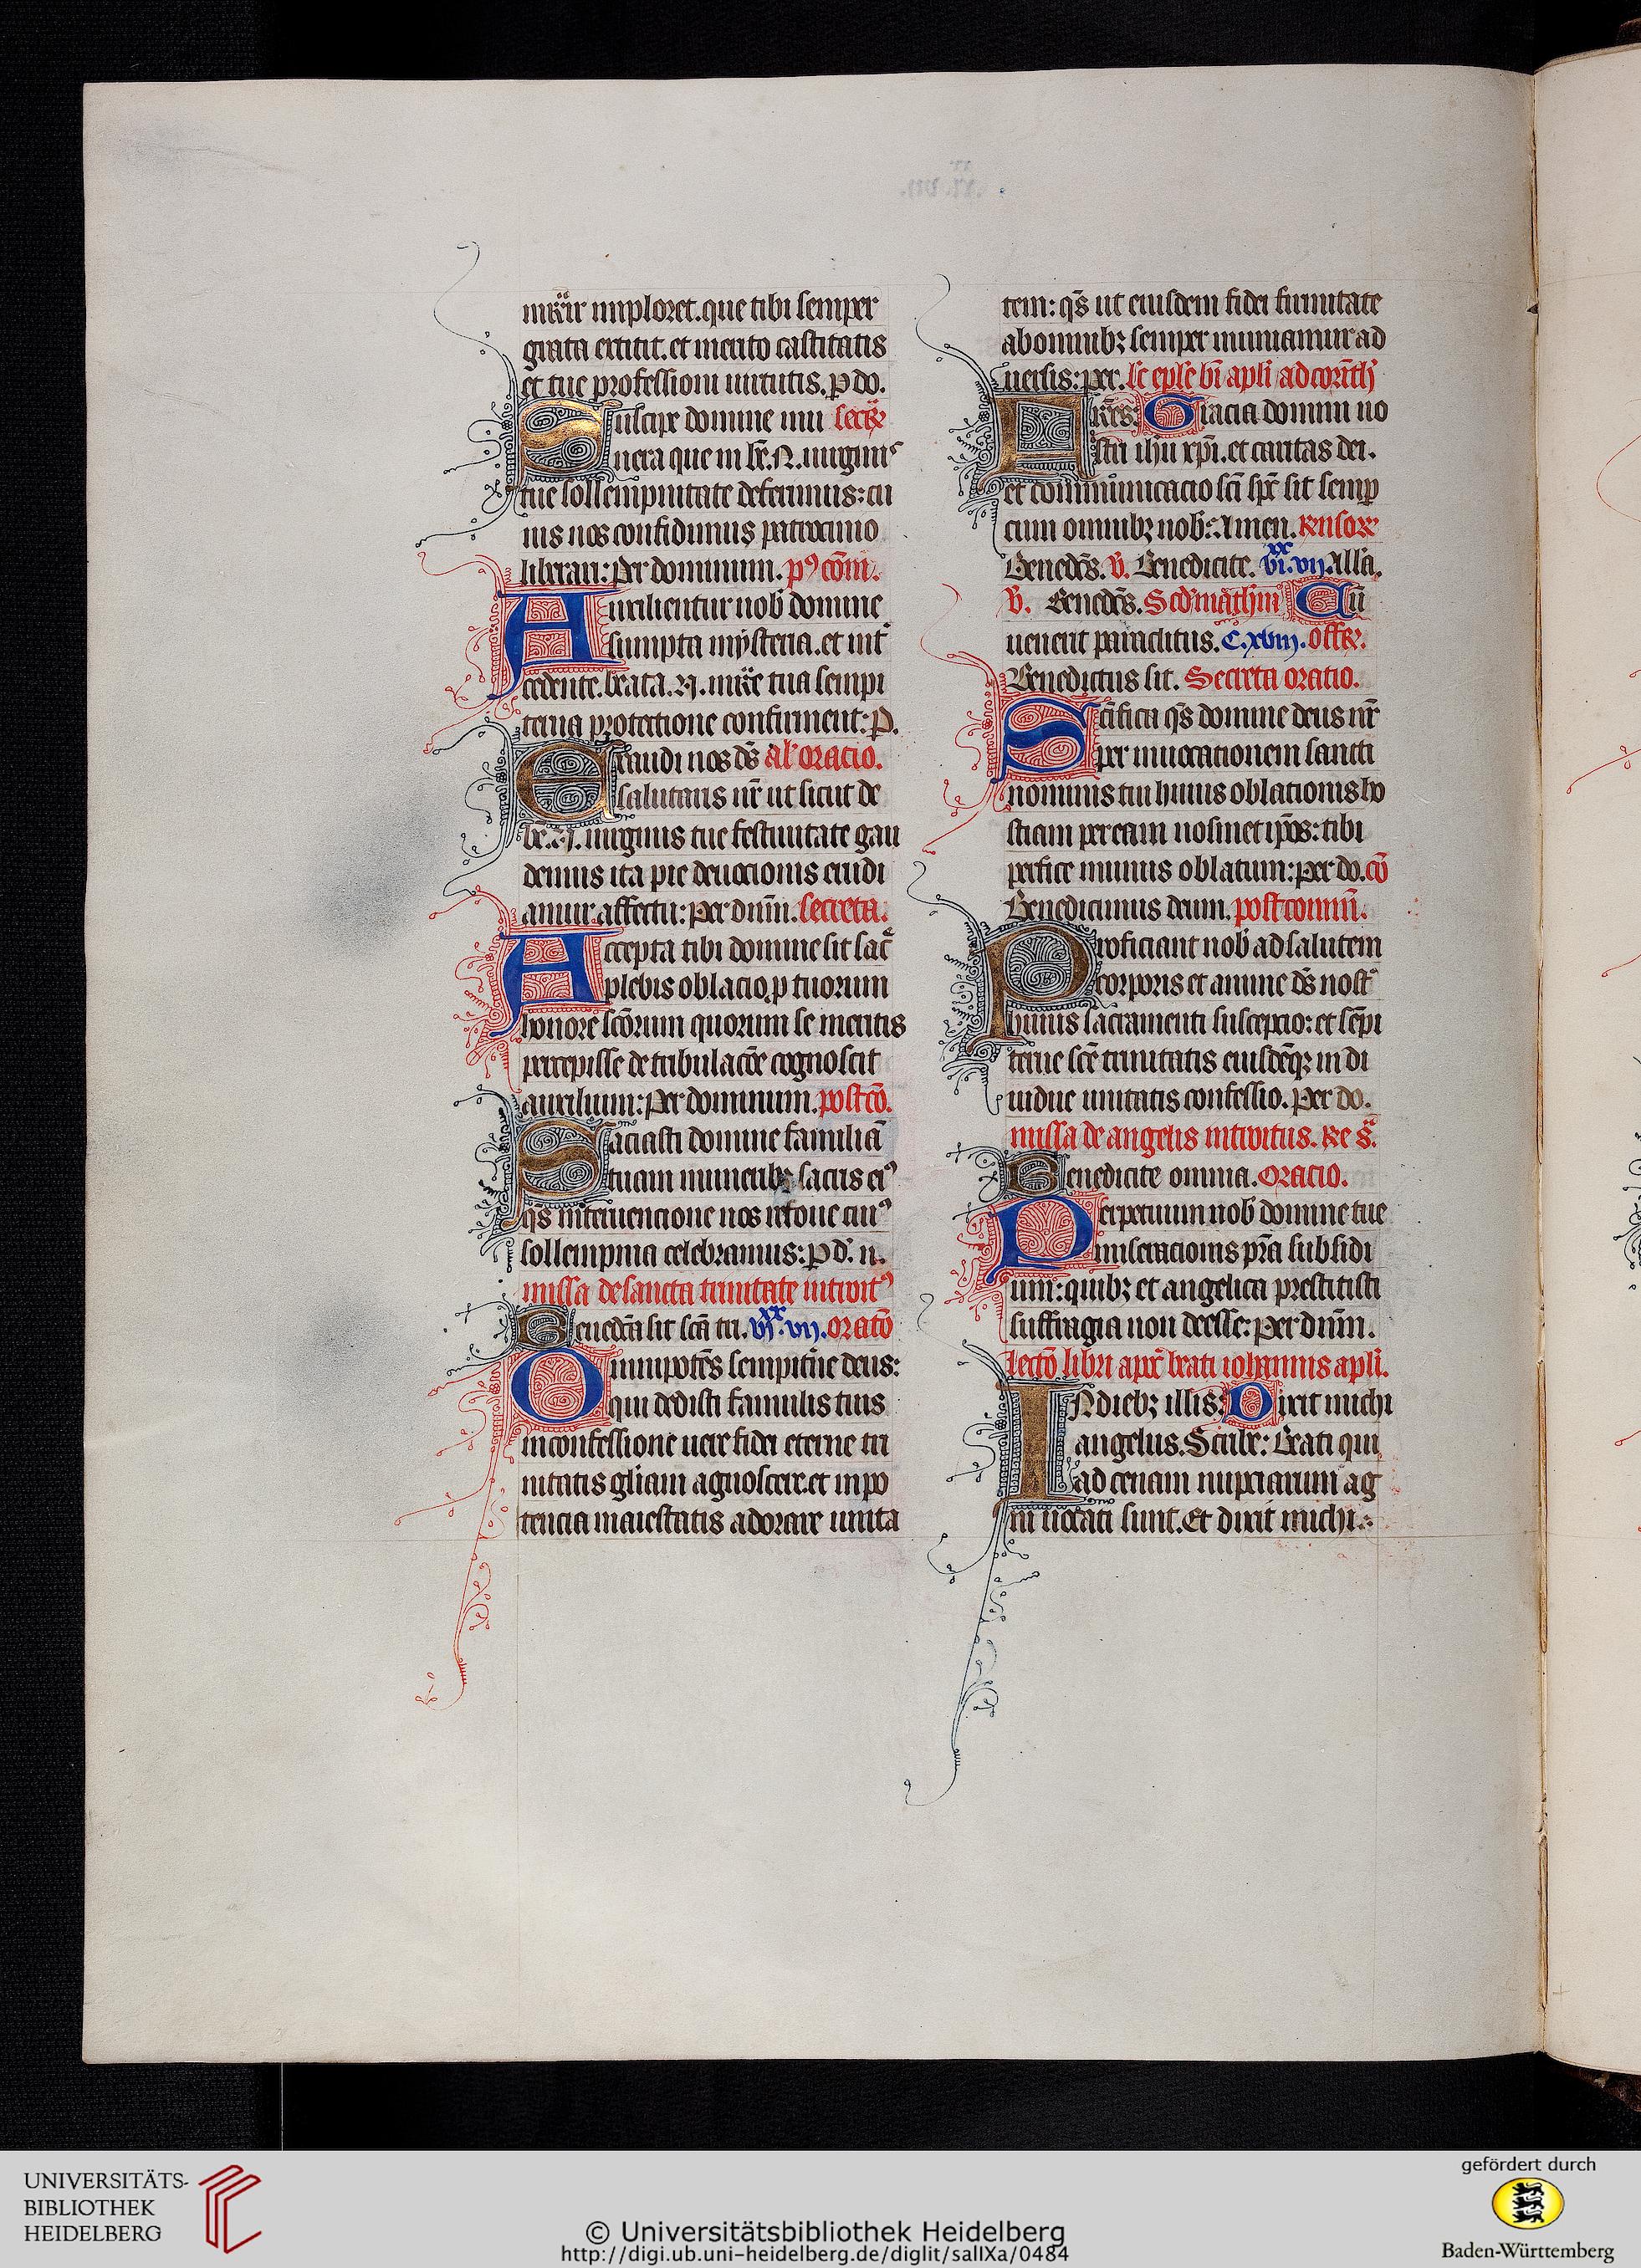 mr̃ir imploret. que tibi semper
grata extitit. et merito castitatis
et tue professioni uirtutis. ꝑ do.
Suscipe domine mu secr̃
nera que in bẽ. N. uirginis
tue sollempnitate deferimus: cu
ius nos confidimus patrocinio
liberari: Per dominum. pꝯ cõm.
Auxilientur nob̃ domine
sumpta mysteria. et int̾
cedente. beata. N. mr̃e tua sempi
terna protectione confirment: ꝑ.
Exaudi nos ds̃ al̾ oracio.
salutaris nr̃ ut sicut de
bẽ. N. uirginis tue festiuitate gau
demus ita pie deuocionis erudi
amur affectu: Per dnm̃. secreta.
Accepta tibi domine sit sac̃
plebis oblacio ꝓ tuorum
honore scõrum quorum se meritis
percepisse de tribulacõe cognoscit
auxilium: Per dominum. postcõ.
Saciasti domine familiã
tuam muneribꝫ sacris eiꝯ
qs̃ interuencione nos refoue cuiꝯ
sollempnia celebramus: ꝑ d. n.
missa de sancta trinitate introitꝯ
Benedc̃a sit scã tri. vi. xx. vij. oratõ
Omnipotẽs sempit̾ne deus:
qui dedisti famulis tuis
in confessione uere fidei eterne tri
nitatis gl̃iam agnoscere. et in po
tencia maiestatis adorare unita
tem: qs̃ ut eiusdem fidei firmitate
ab omnibꝫ semper muniamur ad
uersis: per. lc̃ epl̃e bĩ apl̃i ad corĩth̾
Fr̃es: Gracia domini no
stri ihũ xpĩ. et caritas dei.
et communicacio scĩ spc̃ sit semꝑ
cum omnibꝫ nob̃: Amen. Rensor̃
Benedc̃s. V̷. Benedicite. vi. xx. vij. All̃a.
V̷. Benedc̃s. Scd̾ math̃m Cũ
uenerit paraclitus. C. xlviij. Offr̃.
Benedictus sit. Secreta oratio.
Scĩfica qs̃ domine deus nr̃
per inuocationem sancti
nominis tui huius oblationis ho
stiam per eam nosmet ip̃os: tibi
perfice munus oblatum: per do. cõ
Benedicimus deum. post commũ.
Proficiant nob̃ ad salutem
corporis et anime ds̃ nost̾
huius sacramenti suscepcio: et sẽpi
terne scẽ trinitatis eiusdẽqꝫ in di
uidue unitatis confessio. Per do.
missa de angelis introitus. Re sᵃ.
Benedicite omnia. Oracio.
Perpetuum nob̃ domine tue
miseracionis pr̃a subsidi
um: quibꝫ et angelica prestitisti
suffragia non deesse: Per dnm̃.
lectõ libri apoc̃ beati iohannis apl̃i.
IN diebꝫ illis: Dixit michi
angelus. Scribe: Beati qui
ad cenam nupciarum ag
ni uocati sunt. Et dixit michi.
UNIVERSITÄTS-
BIBLIOTHEK
HEIDELBERG
© Universitätsbibliothek Heidelberg
http://digi.ub.uni-heidelberg.de/diglit/salIXa/0484
gefördert durch
Baden-Württemberg